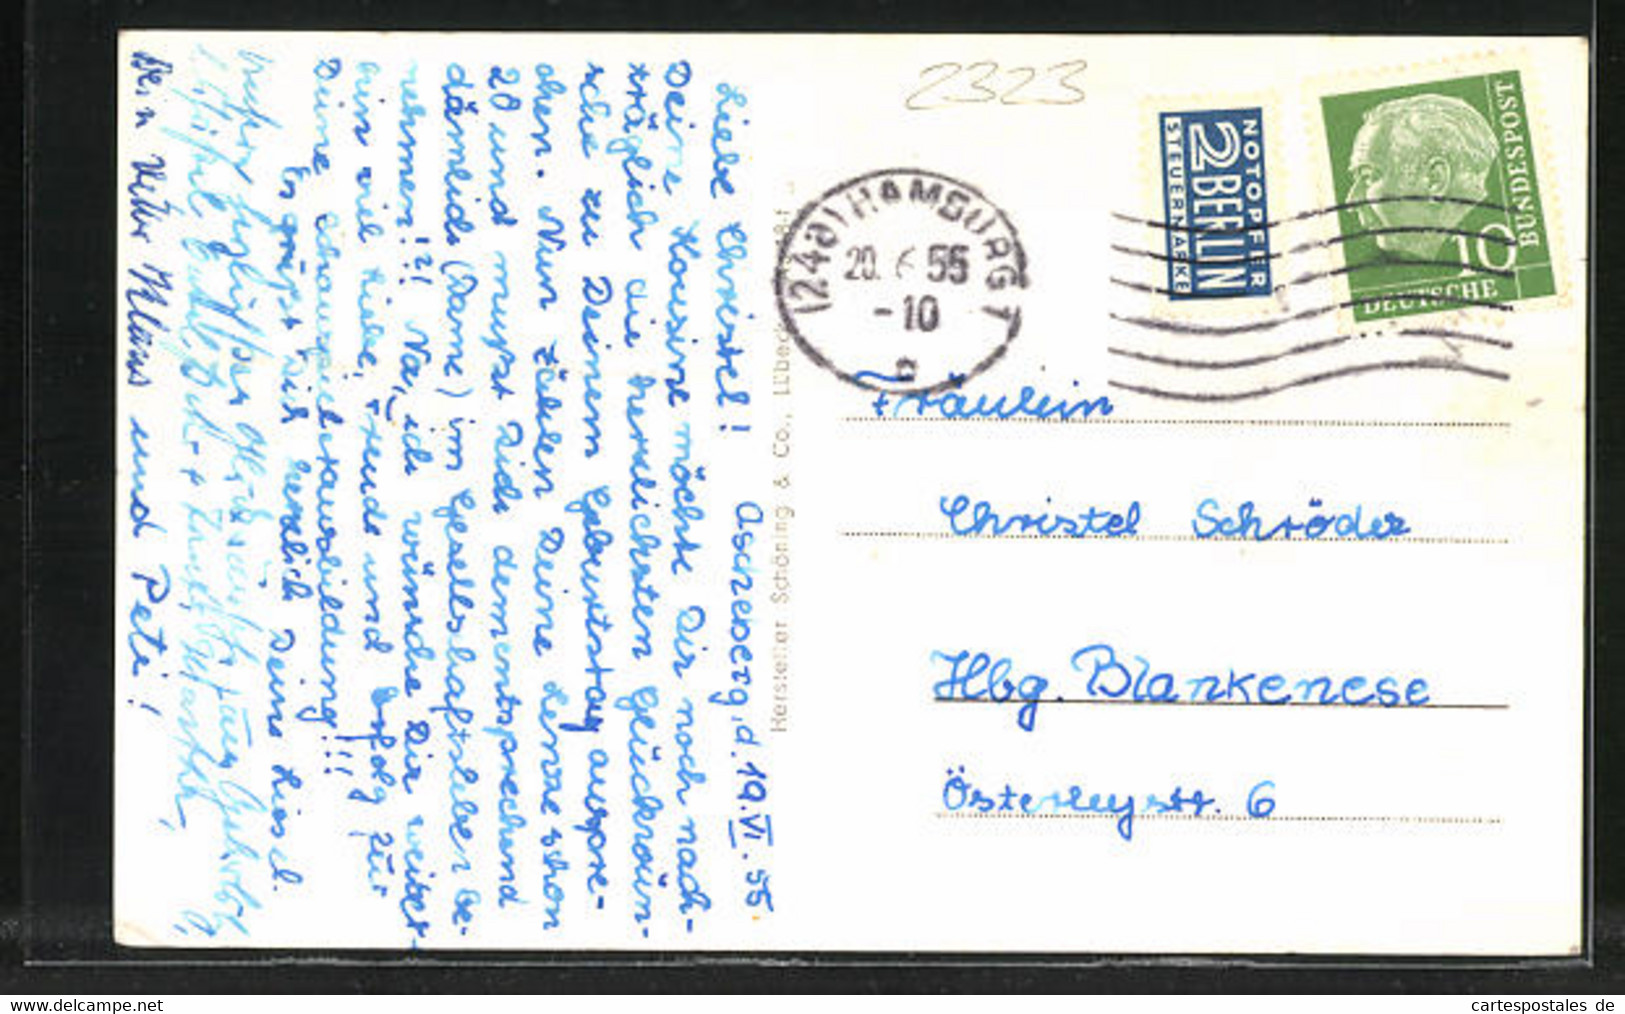 Ascheberg, d. 19.VI.55
Liebe Christel!
Deine Kousine möchte Dir noch nach-
träglich die herzlichsten Glückwün-
sche zu Deinem Geburtstag auspre-
chen. Nun zählen Deine Lenze schon
20 und mußt Dich dementsprechend
dämlich (Dame) im Gesellschaftsleben be-
nehmen!?! Na, ich wünsche Dir weiter-
hin viel Liebe, Freude und Erfolg für
Deine Schauspielausbildung!!!
Es grüßt Dich herzlich Deine Liesel.
Dein Vetter Klaus und Peti!
Hersteller Schöning & Co., Lübeck
2323
(24a) HAMBURG 1
20.6.55
-10
NOTOPFER
2 BERLIN
STEUERMARKE
DEUTSCHE
BUNDESPOST
10
Fräulein
Christel Schröder
Hbg. Blankenese
Österleystr. 6
Delcampe.net
cartespostales de